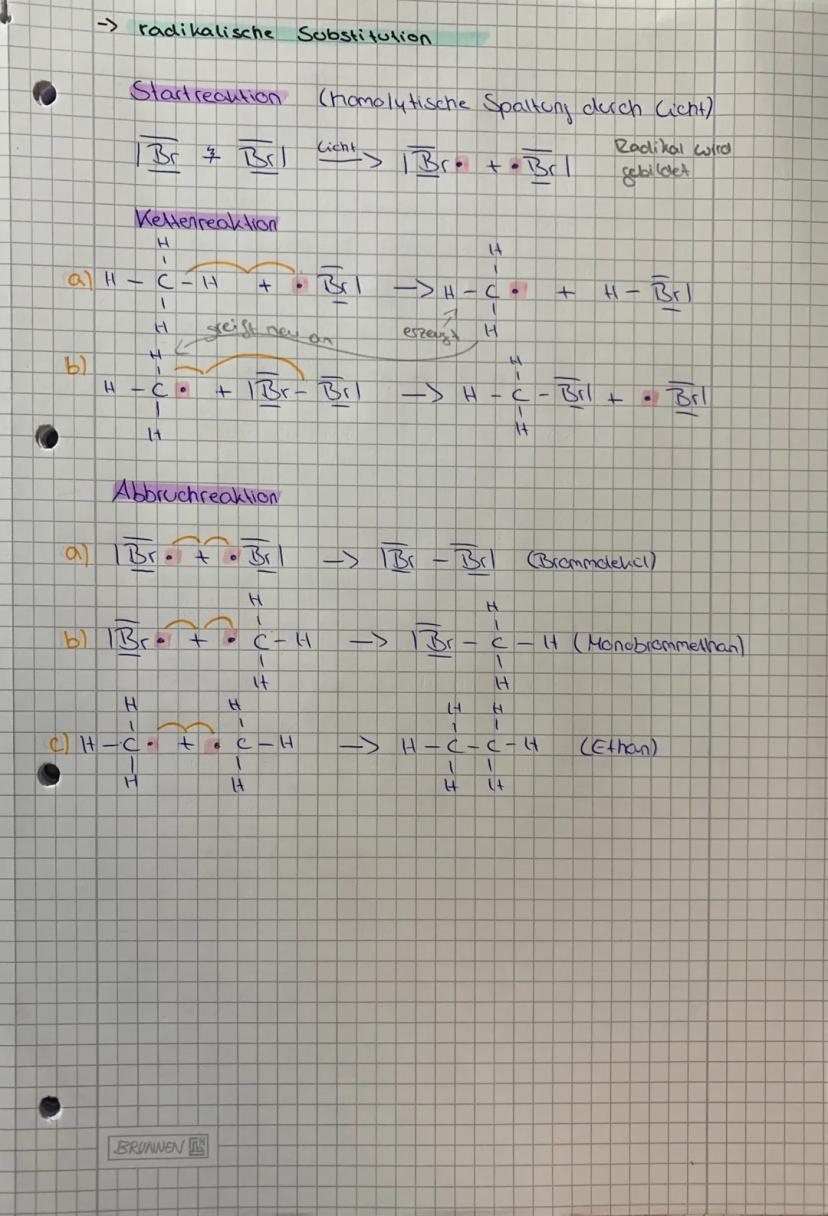 → radikalische Substitution
Startreaktion (homolytische Spaltung durch Licht)
|Br ⚡ Br| Licht→ |Br• + •Br| Radikal wird
gebildet
Kettenreaktion
H
a) H – C – H + • Br| → H – C • + H – Br|
H
H
H
greift neu an
erzeugt
H
b) H – C • + |Br – Br| → H – C – Br| + • Br|
H
H
H
Abbruchreaktion
a) |Br • + • Br| → |Br – Br| (Brommolekül)
H
H
b) |Br • + • C – H → |Br – C – H (Monobrommethan)
H
H
H H H H
c) H – C • + • C – H → H – C – C – H (Ethan)
H H H H
BRUNNEN